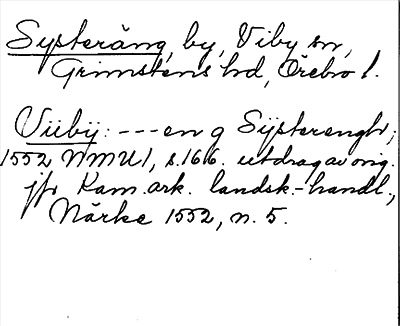 Systeräng, by, Viby sn,
Grimstens hd, Örebro l.
Viibÿ: --- en g Sÿsterengh;
1552 NMU 1, s. 166. utdrag av orig.
jfr Kam. ark. landsk.-handl.,
Närke 1552, n. 5.